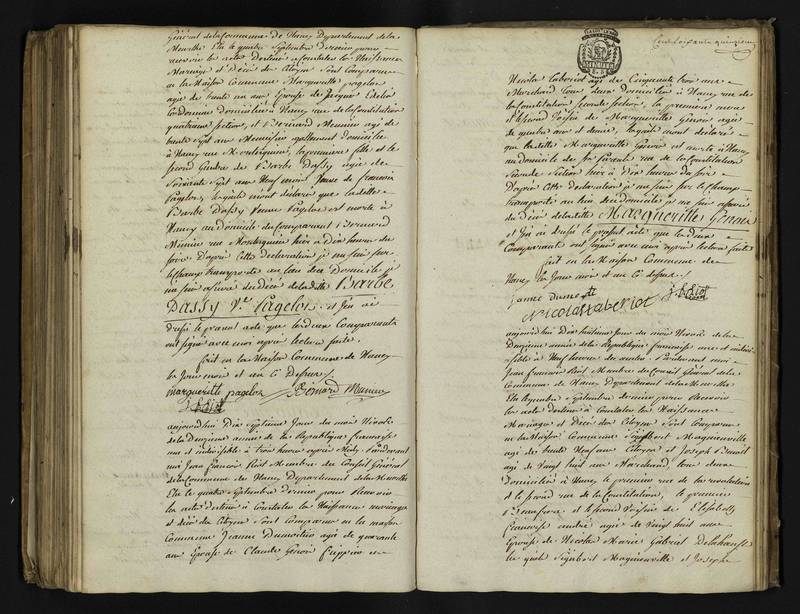 Général de la Commune de Nancy Département de la
Meurthe Elu le quatre Septembre dernier pour
recevoir les actes destinés à constater les Naissances
Mariages et Décès des Citoyens sont Comparus
en la Maison Commune Marguerite pagelos
agée de trente un ans Epouse de Jacques
Cordonnier Domicilié à Nancy rue de la Constitution
quatrieme Section, et Bernard Munier agé de
trente sept ans Menuisier également Domicilié
à Nancy rue Montesquieu, la premiere fille et le
second Gendre de Barbe Dassy agée de
Soixante sept ans Neuf mois Veuve de francois
Pagelos, lesquels m'ont déclaré que ladite
Barbe Dassy Veuve Pagelos est morte à
Nancy au domicile du Comparant Bernard
Munier rue Montesquieu hier à Dix heures du
soir. D'après cette Déclaration je me suis sur
le champ transporté au lieu de ce Domicile je
me suis assuré du décès de ladite Barbe
Dassy Ve. Pagelos. et j'en ai
dressé le present acte que les deux Comparants
ont signé avec moi après lecture faite.
fait en la Maison Commune de Nancy
les Jour mois et an cy Dessus.
marguerite pagelos Bernard Munier
aujourd'hui Dix Septieme Jour du mois Nivose
de la Deuxieme année de la Republique francaise
une et indivisible à trois heures après Midy. Pardevant
moi Jean francois Membre du Conseil Général
de la Commune de Nancy Departement de la Meurthe
Elu le quatre Septembre dernier pour Recevoir
les actes destinés à Constater les Naissances mariages
et décès des Citoyens sont comparus en la maison
Commune Jeanne Dumestie agée de quarante
ans Epouse de Claude Genon frippier et
Nicolas Laboriot agé de Cinquante trois ans
Marchand tous deux Domiciliés à Nancy rue de
la Constitution seconde Section, la premiere mere
et le second Voisin de Margueritte Genon agée
de quatre ans et demie, lesquels m'ont declaré
que ladite Margueritte Genon est morte à Nancy
au domicile de rue de la Constitution
Seconde Section hier à Dix heures du soir.
D'après cette déclaration je me suis sur le champ
transporté au lieu de ce domicile je me suis assuré
du Décès de ladite Margueritte Genon
et j'en ai dressé le present acte que les deux
Comparants ont signé avec moi après lecture faite
fait en la Maison Commune de
Nancy les Jour mois et an cy dessus.
janne dumestie
Nicolas Laboriot
aujourd'hui Dix huitieme Jour du mois Nivose de la
Deuxieme année de la Republique francaise une et indivi-
sible à Neuf heures du matin. Pardevant moi
Jean francois Membre du Conseil Général de la
Commune de Nancy Departement de la Meurthe
Elu le quatre Septembre dernier pour Recevoir
les actes destinés à Constater les Naissances
Mariages et décès des Citoyens sont Comparus
en la Maison Commune Sigisbert
agé de trente Neuf ans Citoyen et Joseph
agé de Vingt huit ans Marchand, tous deux
domiciliés à Nancy le premier rue de la revolution
et le second rue de la Constitution, le premier
et le second Voisin de Elisabeth
francoise agée de Vingt huit ans
Epouse de Nicolas Marie Gabriel
les quels Sigisbert et Joseph